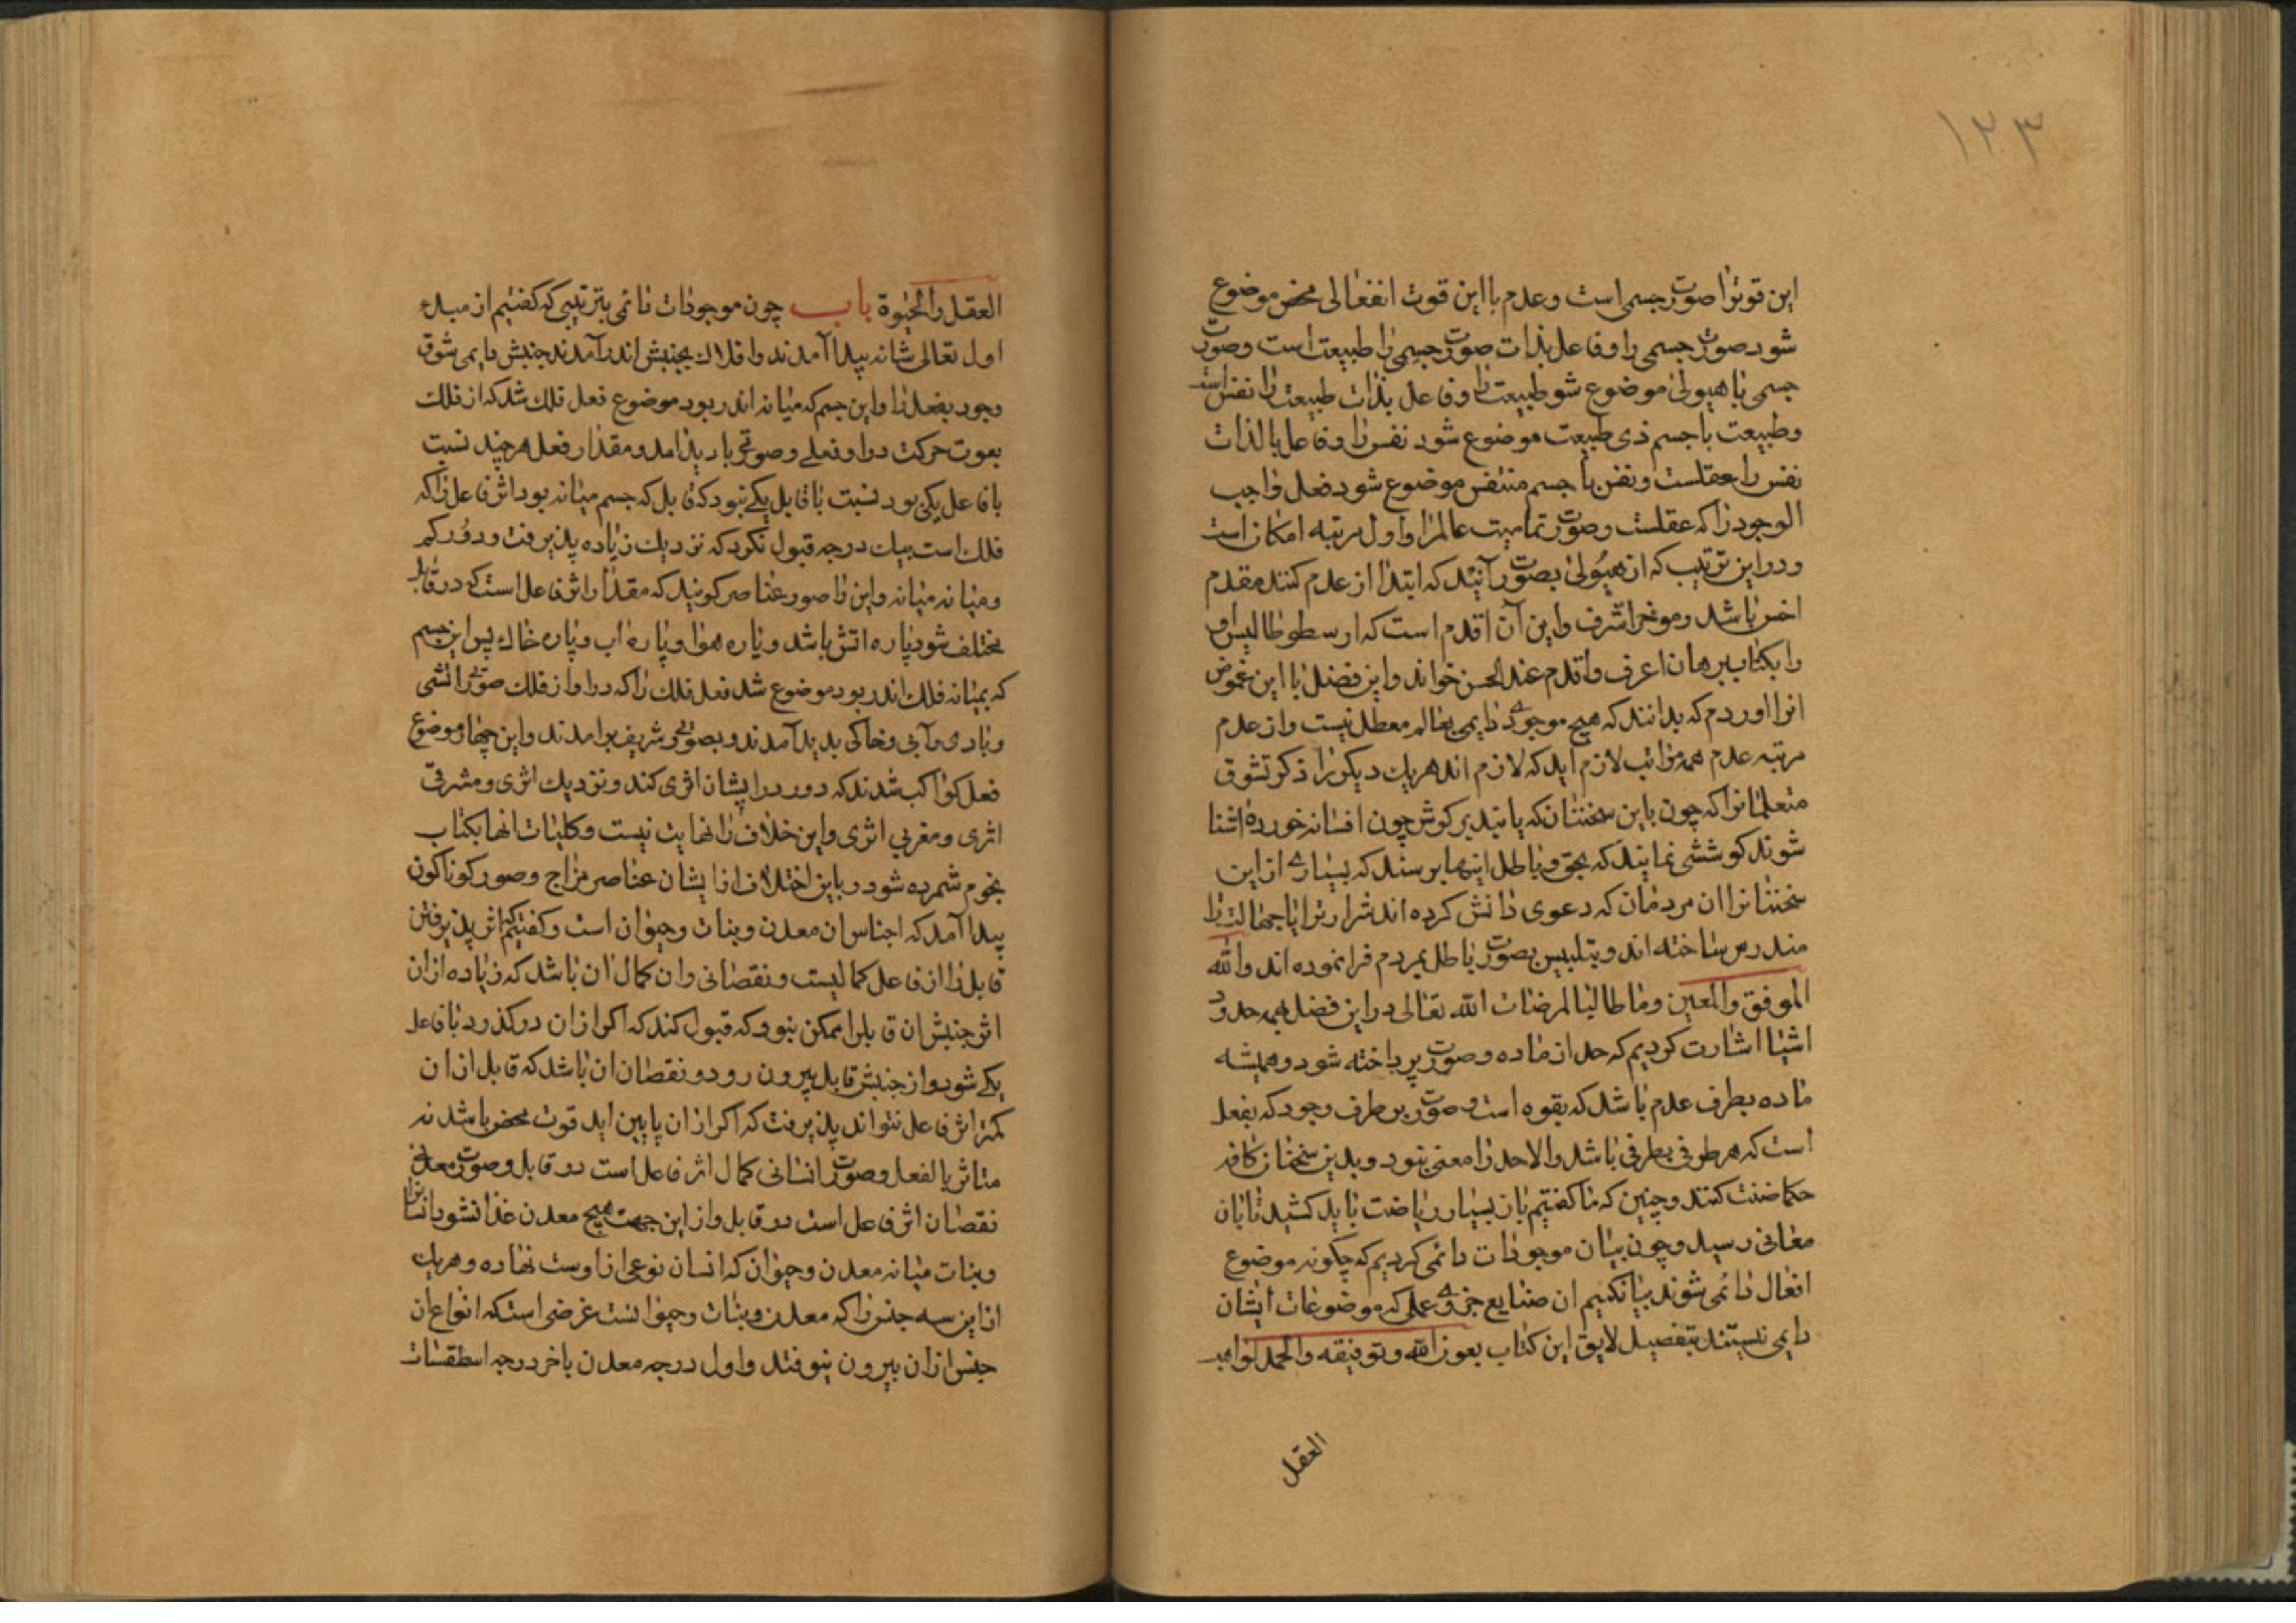 ۱۲۳
این قوترا صورت جسمی است وعدم با این قوت انفعالی محض موضوع
شود صورت جسمی را وفاعل بذات صورت جسمی را طبیعت است وصورت
جسمی با هیولی موضوع شود طبیعت را وفاعل بذات طبیعت را نفس است
وطبیعت با جسم ذی طبیعت موضوع شود نفس را وفاعل بالذات
نفس را عقلست ونفس با جسم متنفس موضوع شود فعل واجب
الوجود را که عقلست وصورت تمامیت عالمرا واول مرتبه امکان است
ودر این ترتیب که از هیولی بصورت آیند که ابتدا از عدم کنند مقدم
اخس باشد وموخر اشرف واین آن اقدم است که ارسطوطالیس او
را بکتاب برهان اعرف واقدم عند الحس خواند واین فصل با این غموض
انرا اوردم که بدانند که هیچ موجودی دایمی بعالم معطل نیست واز عدم
مرتبه عدم همه مراتب لازم اید که لازم اند هریك دیکر را ذکر تشوق
متعلمانرا که چون باین سخنان که یابند بر کوش چون افسانه خورده اشنا
شوند کوششی نمایند که بحق وباطل اینها برسند که بسیاری از این
سخنانرا ان مردمان که دعوی دانش کرده اند شرارترا یا جهالت را
مندرس ساخته اند وبتلبیس بصورت باطل بمردم فرا نموده اند والله
الموفق والمعین وما طالبا لمرضات الله تعالی در این فصل همه حدود
اشیا اشارت کردیم که حد از ماده وصورت پرداخته شود وهمیشه
ماده بطرف عدم باشد که بقوه است وصورت بر طرف وجود که بفعل
است که هر طرفی بطرفی باشد والا حد را معنی نبود وبدین سخنان کافه
حکما ضنت کنند وچنین که ما کفتیم باز بسیار ریاضت باید کشید تا بان
معانی رسید وچون بیان موجودات دائمی کردیم که چکونه موضوع
افعال دائمی شوند بیان کنیم ان صنایع جزوی عملی که موضوعات ایشان
دایمی نیستند بتفصیل لایق این کتاب بعون الله وتوفیقه والحمد لواهب
العقل
العقل والحیوة باب چون موجودات دائمی بترتیبی که کفتیم از مبداء
اول تعالی شانه پیدا آمدند وافلاك بجنبش اندر آمدند جنبش دایمی شوق
وجود بفعل را واین جسم که میانه اندر بود موضوع فعل فلك شد که از فلك
بقوت حرکت در او فعلی وصورتی باد پدامد ومقدار فعل هر چند نسبت
با فاعل یکی بود نسبت با قابل یکی نبود که قابل که جسم میانه بود اثر فاعل را که
فلك است بیك درجه قبول نکرد که نزدیك زیاده پذیرفت ودور کم
ومیانه میانه واین را صور عناصر کویند که مقدار اثر فاعل است که در قابل
مختلف شود پاره اتش باشد وپاره هوا وپاره اب وپاره خاك پس این جسم
که بمیانه فلك اندر بود موضوع شد فعل فلك را که در او از فلك صورتی اتشی
وبادی وآبی وخاکی بدید آمدند وبصورتی شریف برامدند واین چهار موضوع
فعل کواکب شدند که دور در ایشان اثری کند ونزدیك اثری ومشرقی
اثری ومغربی اثری واین خلاف را نهایت نیست وکلیات انها بکتاب
نجوم شمرده شود وباین اختلاف از ایشان عناصر مزاج وصور کوناکون
پیدا آمد که اجناس ان معدن ونبات وحیوان است وکفتیم که اثر پذیرفتن
قابل را از فاعل کمالیست ونقصانی وان کمال ان باشد که زیاده از ان
اثر جنبش ان قابلرا ممکن نبود که قبول کند که اکر از ان درکذرد با فاعل
یکی شود واز جنبش قابل بیرون رود ونقصان ان باشد که قابل از ان
کمتر اثر فاعل نتواند پذیرفت که اکر از ان پایین اید قوت محض باشد نه
متاثر بالفعل وصورت انسانی کمال اثر فاعل است در قابل وصورت معدنی
نقصان اثر فاعل است در قابل واز این جهت هیچ معدن غذا نشود انسانرا
ونبات میانه معدن وحیوان که انسان نوعی از اوست نهاده وهریك
از این سه جنس را که معدن ونبات وحیوانست عرضی است که انواع ان
جنس از ان بیرون نیوفتد واول درجه معدن باخر درجه اسطقسات